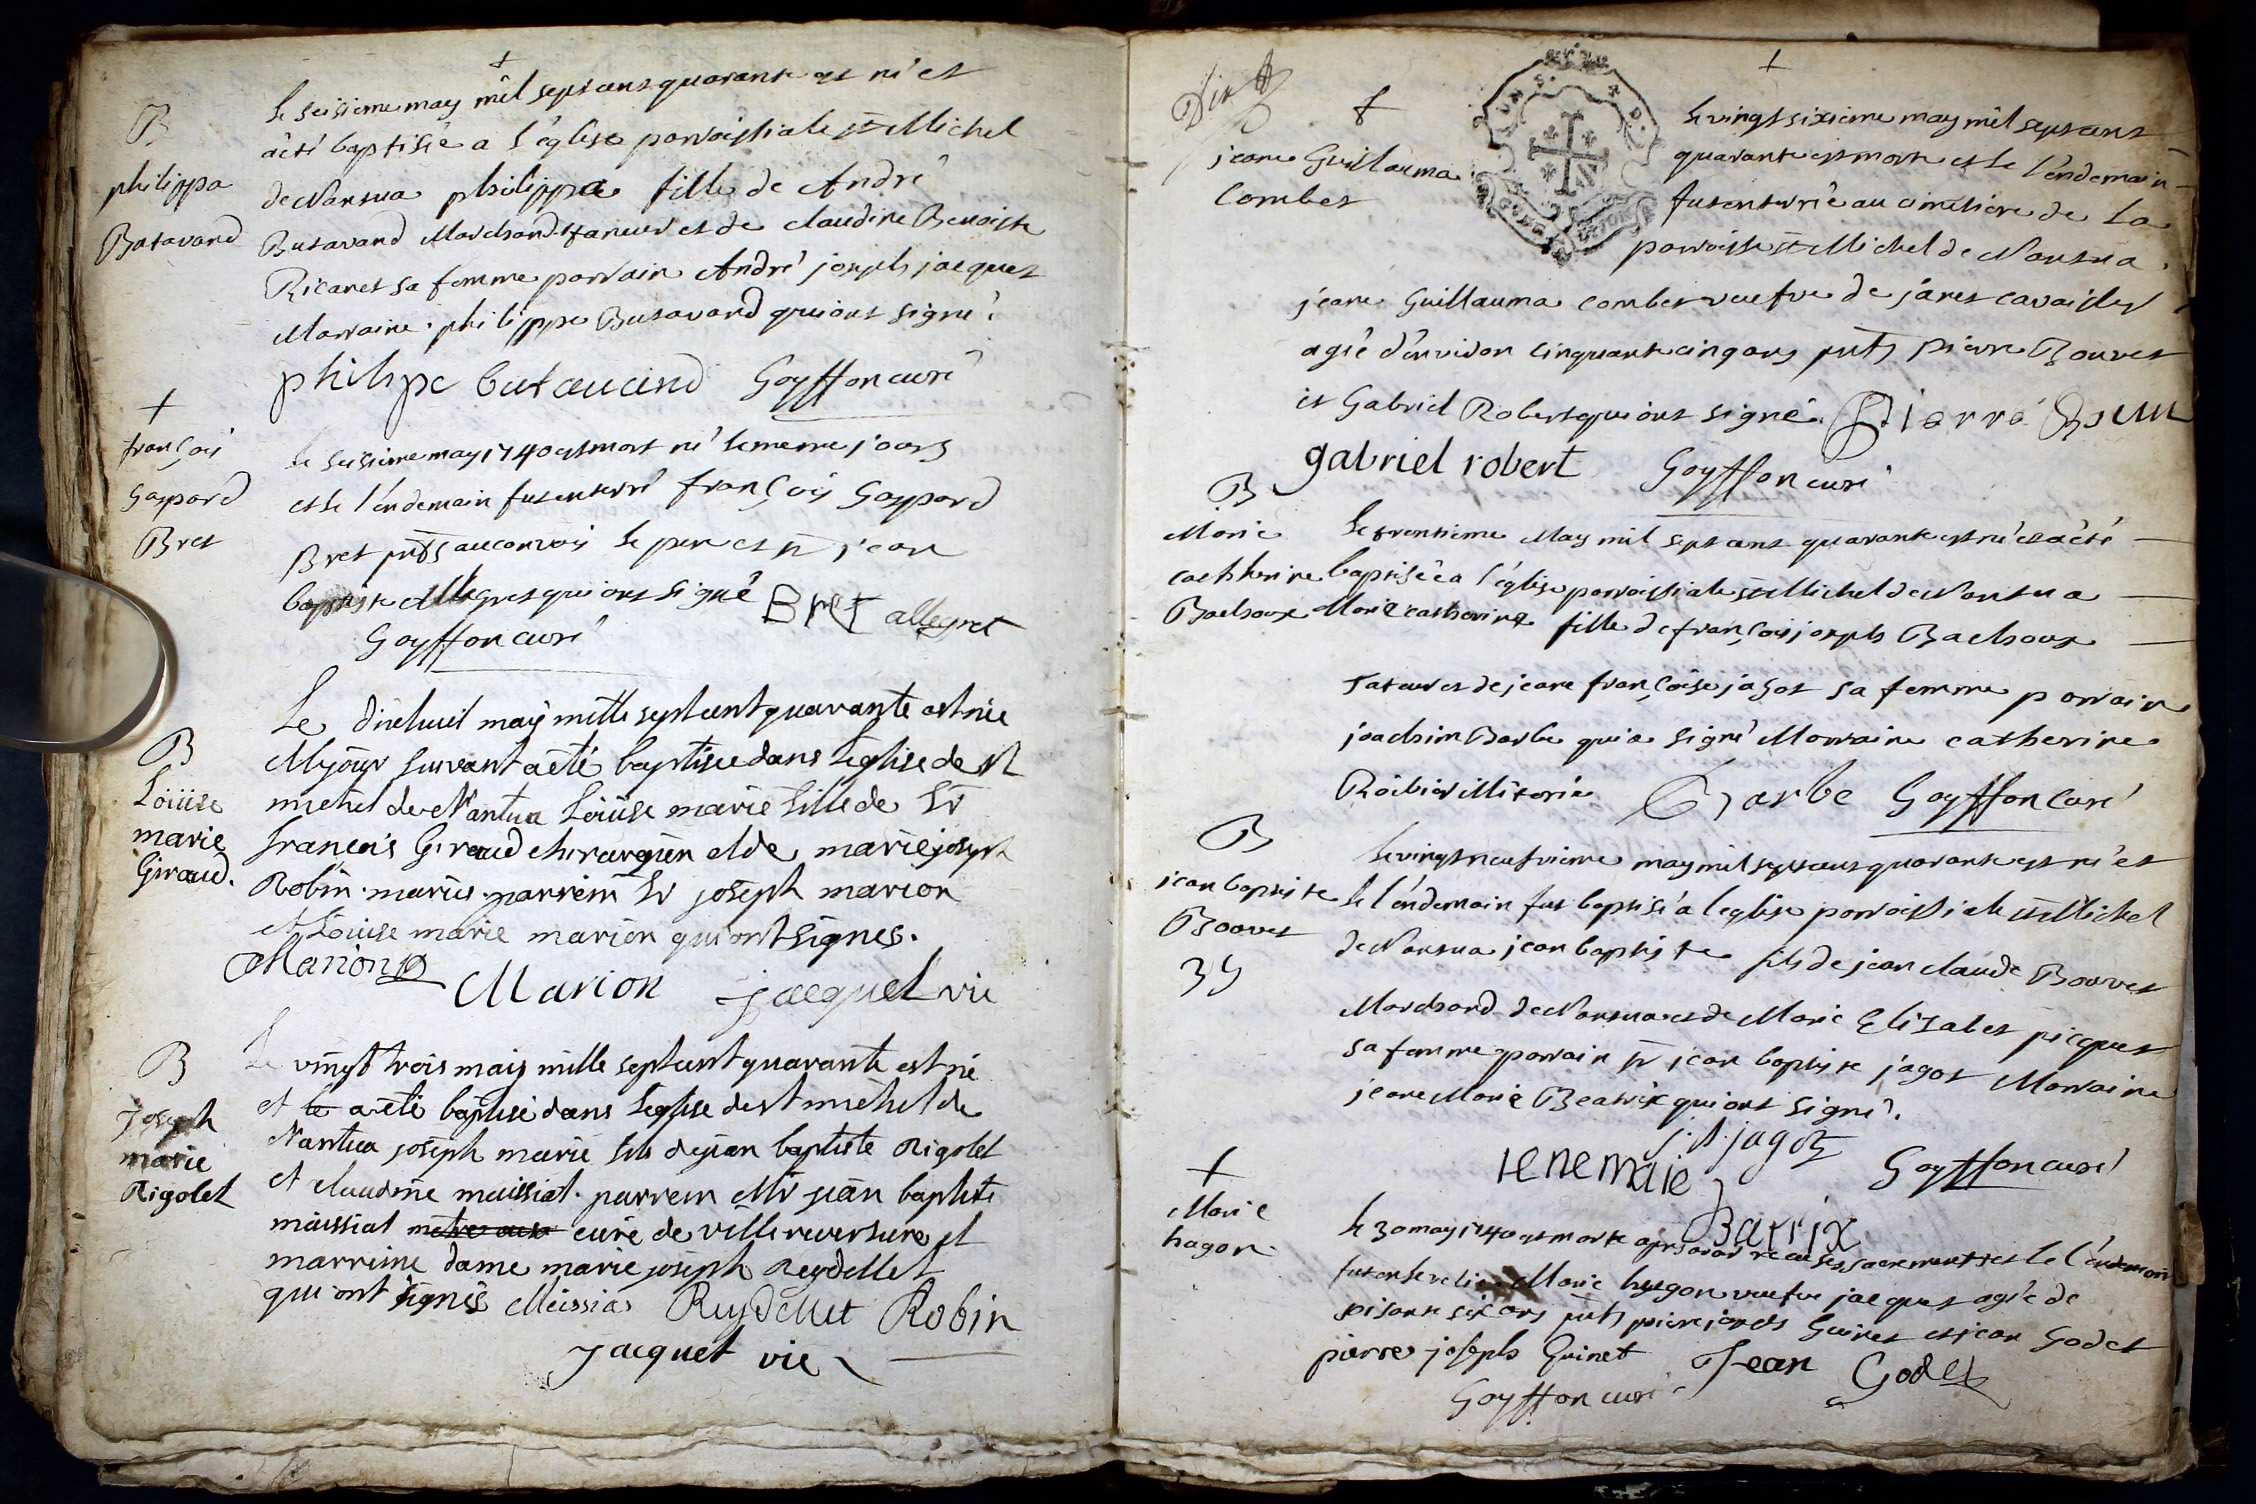 +
B
philippa
Butavand
le seisieme may mil sept cens quarante est né et
a été baptisée a l'église parroissiale st Michel
de Nantua philippa fille de André
Butavand Marchand taneur et de claudine Benoiste
Ricanet sa femme parrain André joseph jacquet
Marraine philippe Butavand qui ont signé
philipe butauand Goyffon curé
+
françois
Gaspard
Bret
le seisieme may 1740 est mort né le meme jours
et le l'endemain fut enterré françois Gaspard
Bret pnts au convois le pere et sr jean
baptiste Allegret qui ont signé Bret allegret
Goyffon curé
B
Loüise
marie
Giraud.
Le dixhuit may mille sept cent quarante est née
et le jour suivant a été baptisée dans l'eglise de st
michel de Nantua Loüise marie fille de Sr
françois Giraud chirurgien et de marie joseph
Robin mariés parrein Sr joseph marion
et Loüise marie marion qui ont signés.
Marion
Marion jacquet vic
B
Joseph
marie
Rigolet
Le vingt trois may mille sept cent quarante est né
et le a été baptisé dans l'eglise de st michel de
Nantua joseph marie fils de jean baptiste Rigolet
et claudine maissiat parrein Mr jean baptiste
maissiat curé de villereversure et
marreine dame marie joseph Reydellet
qui ont signés Meissia Reydellet Robin
Jacquet vic
+
jeane Guillauma
Combet
le vingt sixieme may mil sept cens
quarante est morte et le l'endemain
fut enterrée au cimetiere de la
parroisse st Michel de Nantua
jeane Guillauma combet veufve de janet cavaillet
agée d'environ cinquante cinq ans pnts pierre Bouvet
et Gabriel Robert qui ont signé. Pierre Bouve
gabriel robert Goyffon curé
B
Marie
catherine
Bachoux
le trentieme May mil sept cens quarante est né et a été
baptisée a l'église parroissiale st Michel de Nantua
Marie catherine fille de françois joseph Bachoux
et de jeane françoise jagot sa femme parrain
joachim Barbe qui a signé Marraine catherine
Barbe Goyffon curé
B
jean baptiste
Bouvet
39
le vingt neufvieme may mil sept cens quarante est né et
le l'endemain fut baptisé a l'eglise parroissiale st Michel
de Nantua jean baptiste fils de jean claude Bouvet
Marchand de Nantua et de Marie Elizabet picquet
sa femme parrain sr jean baptiste jagot Marraine
jeane Marie Beatrix qui ont signé.
j.b. jagot
ienemaie Batrix Goyffon curé
+
Marie
hugon
le 30 may 1740 est morte apres avoir receu ses sacrements et le l'endemain
fut ensevelie Marie hugon veufve jacquet agée de
soisante six ans pnts pierre joseph Guinet et jean Godet
pierre joseph Guinet Jean Godet
Goyffon curé